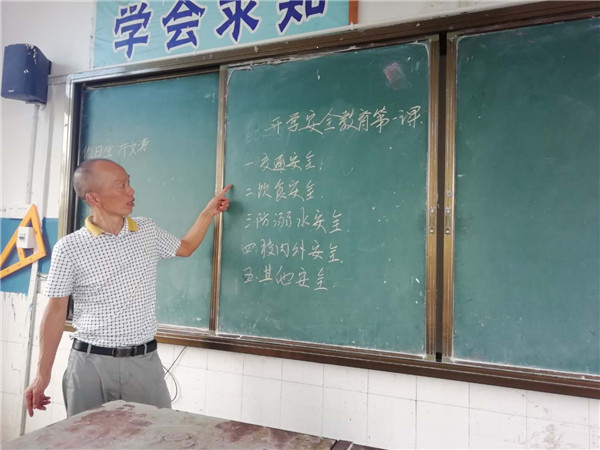 学会求知
开学安全教育第一课
一交通安全;
二饮食安全.
三防溺水安全
四校内外安全.
五.其他安全.